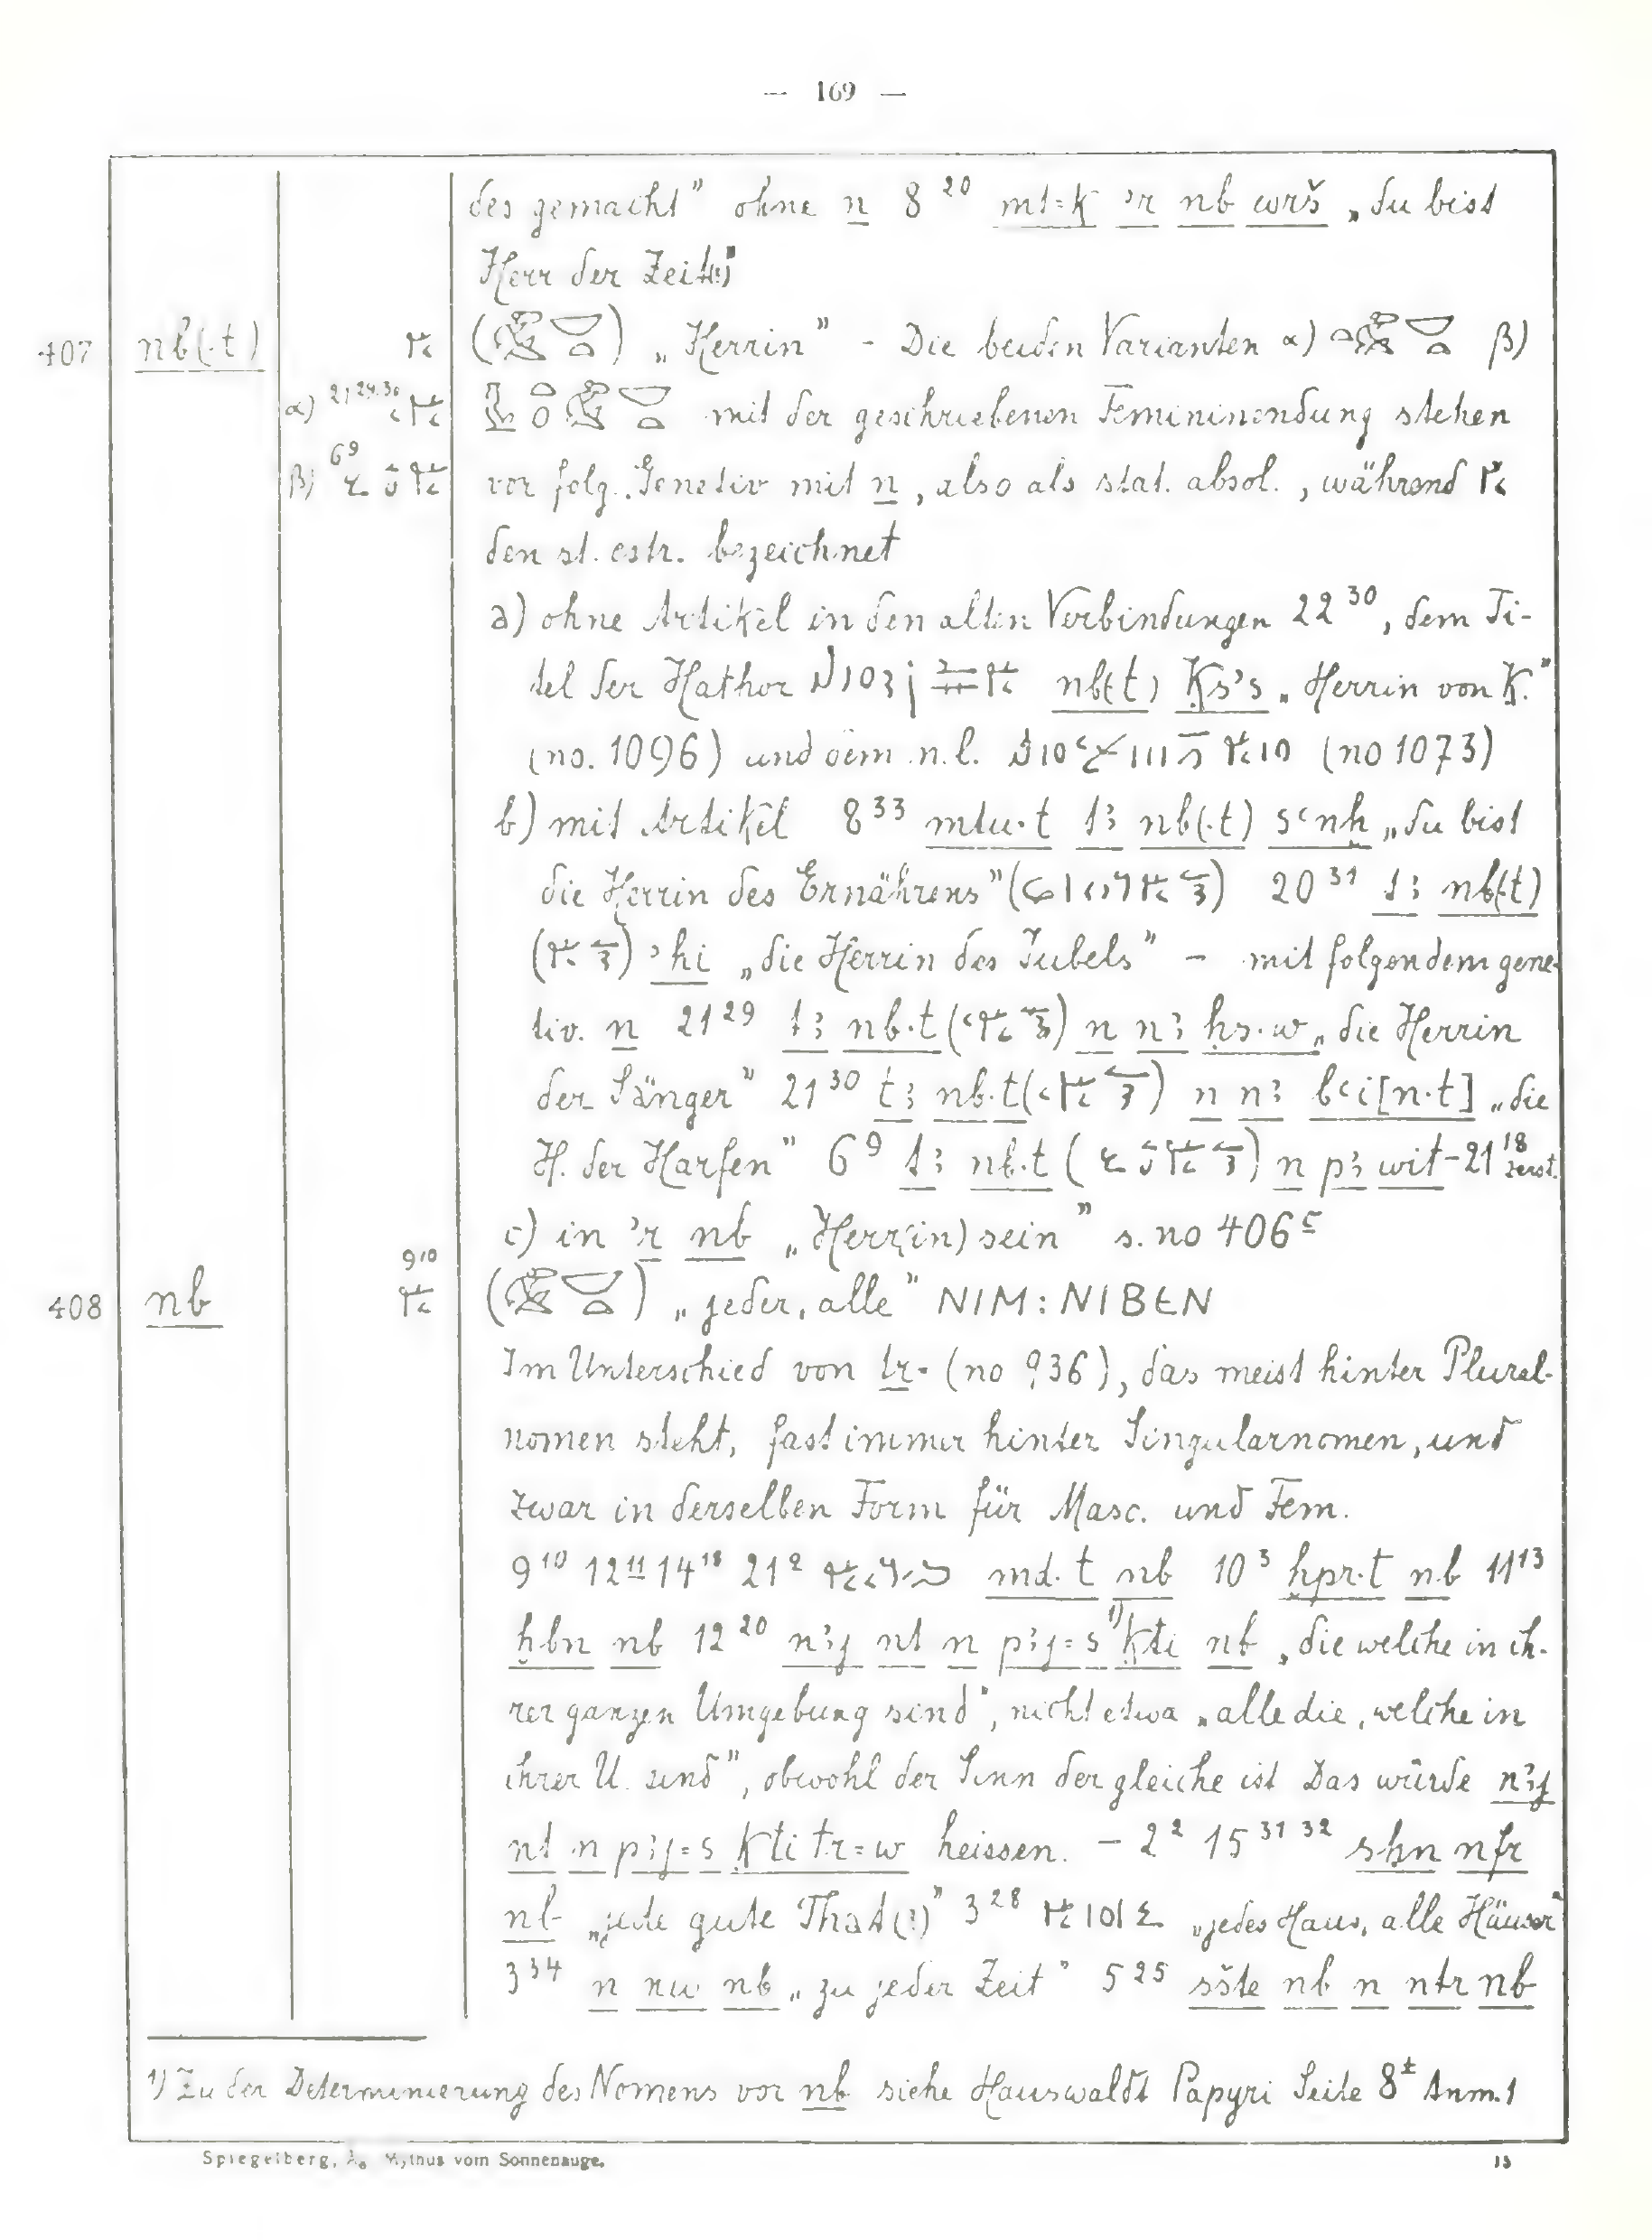 — 169 —
des gemacht" ohne n 8 20 mt=k ꜥr nb wrš „du bist
Herr der Zeit(?)"
407 nb(.t) ( ) „Herrin" - Die beiden Varianten α) β)
α) 21 29.30 mit der geschriebenen Femininendung stehen
β) 6 9 vor folg. Genetiv mit n, also als stat. absol., während
den st. cstr. bezeichnet
a) ohne Artikel in den alten Verbindungen 22 30, dem Ti-
tel der Hathor nb(t) Ks's „Herrin von K."
(no. 1096) und dem n.l. (no 1073)
b) mit Artikel 8 33 mtu.t tꜣ nb(.t) sꜥnḫ „du bist
die Herrin des Ernährens" ( ) 20 31 tꜣ nb(.t)
( ) ꜣhi „die Herrin des Jubels" - mit folgendem gene-
tiv. n 21 29 tꜣ nb.t ( ) n nꜣ ḥs.w „die Herrin
der Sänger" 21 30 tꜣ nb.t ( ) n nꜣ bꜥi[n.t] „die
H. der Harfen" 6 9 tꜣ nb.t ( ) n pꜣ wit - 21 18 zerst.
c) in ꜣr nb „Herr(in) sein" s. no 406 c
408 nb 9 10 ( ) „jeder, alle" NIM : NIBEN
Im Unterschied von tr- (no 936), das meist hinter Plural-
nomen steht, fast immer hinter Singularnomen, und
zwar in derselben Form für Masc. und Fem.
9 10 12 11 14 18 21 2 md.t nb 10 3 ḫpr.t nb 11 13
ḫbn nb 12 20 nꜣj nt n pꜣj=s 1) ḳti nb „die welche in ih-
rer ganzen Umgebung sind", nicht etwa „alle die, welche in
ihrer U. sind", obwohl der Sinn der gleiche ist Das würde nꜣj
nt n pꜣj=s ḳti tr=w heissen. - 2 2 15 31 32 sḥn nfr
nb „jede gute That(?)" 3 28 „jedes Haus, alle Häuser"
3 34 n nw nb „zu jeder Zeit" 5 25 sšte nb n ntr nb
1) Zu der Determinierung des Nomens vor nb siehe Hauswaldt Papyri Seite 8 Anm. 1
Spiegelberg, Äg. Mythus vom Sonnenauge.